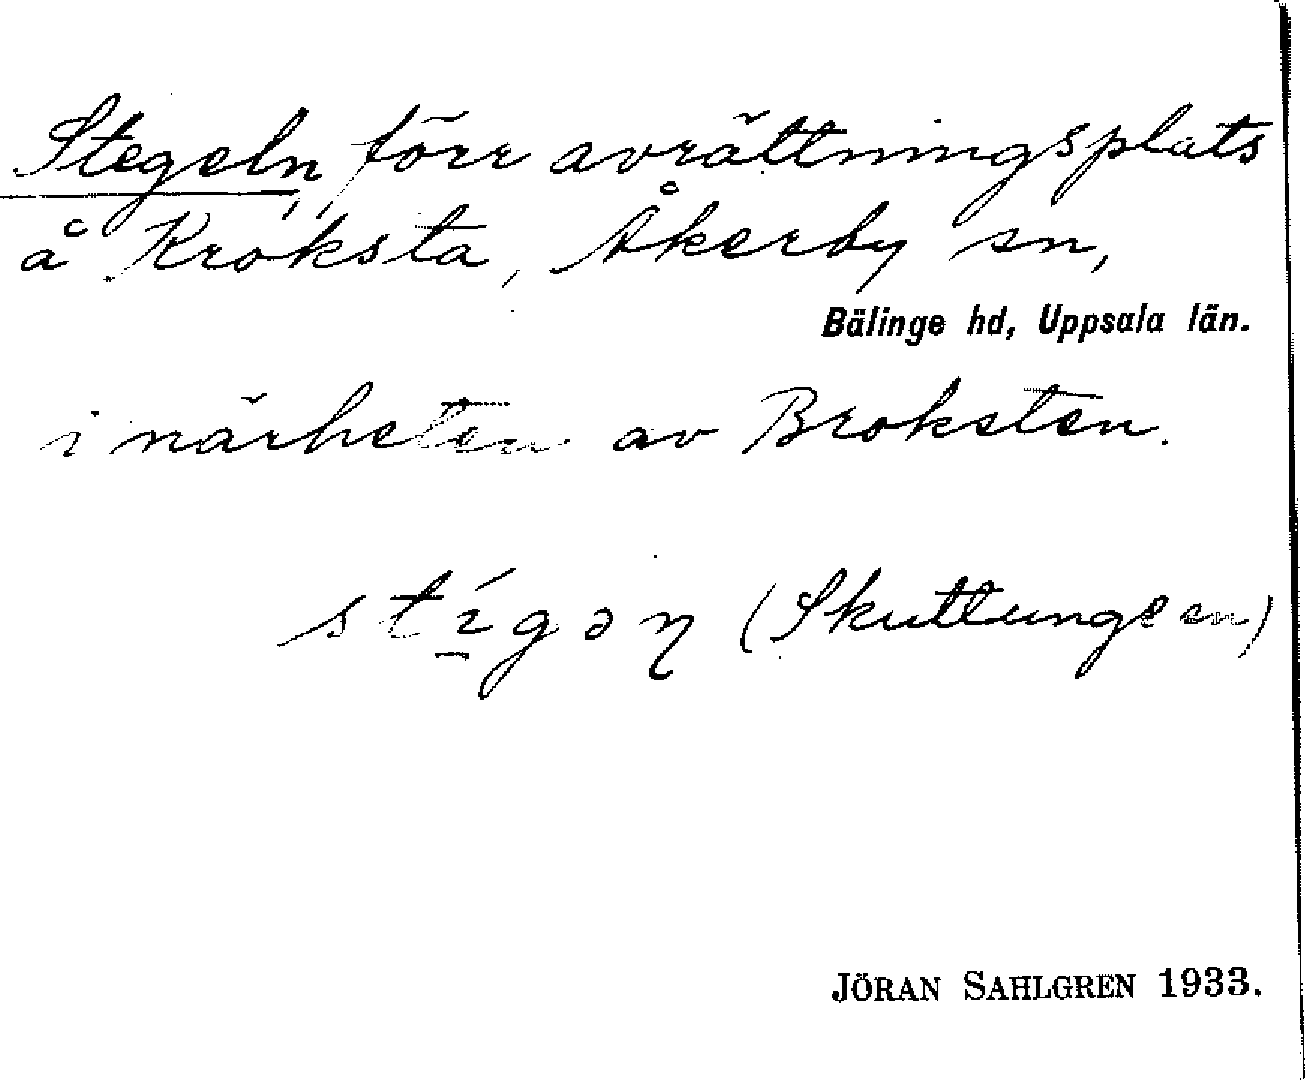 Stegeln, förr avrättningsplats
å Kroksta, Åkerby sn,
Bälinge hd, Uppsala län.
i närheten av Broksten.
(Skuttunge sn)
JÖRAN SAHLGREN 1933.